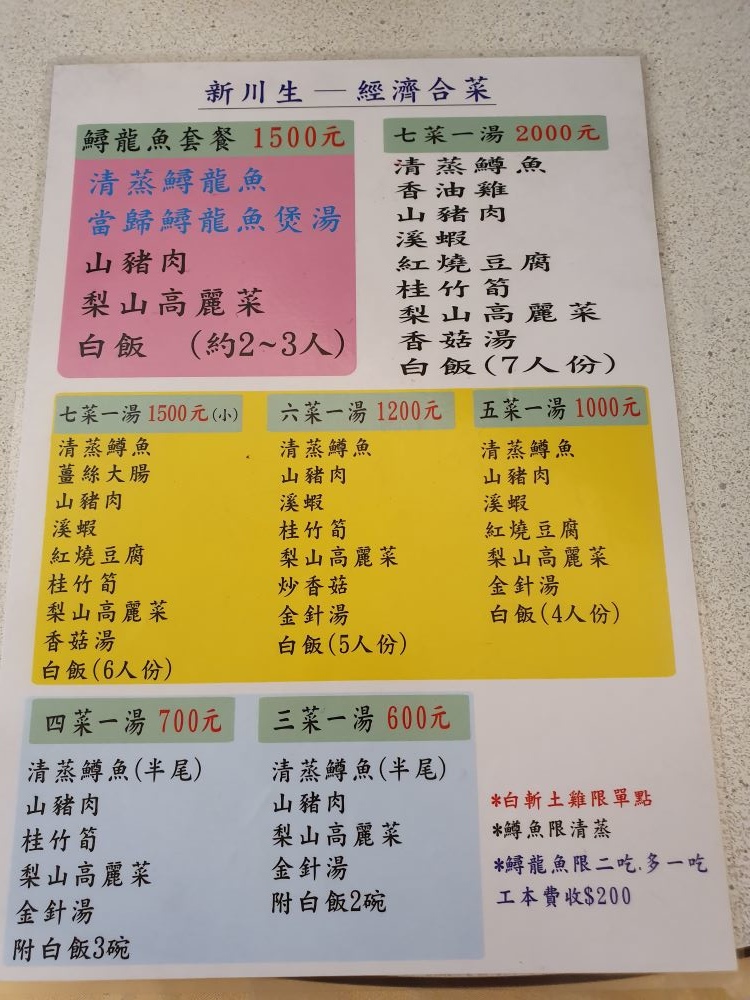 新川生—經濟合菜
鱘龍魚套餐 1500元
清蒸鱘龍魚
當歸鱘龍魚煲湯
山豬肉
梨山高麗菜
白飯 (約2~3人)
七菜一湯 2000元
清蒸鱒魚
香油雞
山豬肉
溪蝦
紅燒豆腐
桂竹筍
梨山高麗菜
香菇湯
白飯(7人份)
七菜一湯 1500元(小)
清蒸鱒魚
薑絲大腸
山豬肉
溪蝦
紅燒豆腐
桂竹筍
梨山高麗菜
香菇湯
白飯(6人份)
六菜一湯 1200元
清蒸鱒魚
山豬肉
溪蝦
桂竹筍
梨山高麗菜
炒香菇
金針湯
白飯(5人份)
五菜一湯 1000元
清蒸鱒魚
山豬肉
溪蝦
紅燒豆腐
梨山高麗菜
金針湯
白飯(4人份)
四菜一湯 700元
清蒸鱒魚(半尾)
山豬肉
桂竹筍
梨山高麗菜
金針湯
附白飯3碗
三菜一湯 600元
清蒸鱒魚(半尾)
山豬肉
梨山高麗菜
金針湯
附白飯2碗
*白斬土雞限單點
*鱒魚限清蒸
*鱘龍魚限二吃.多一吃
工本費收$200